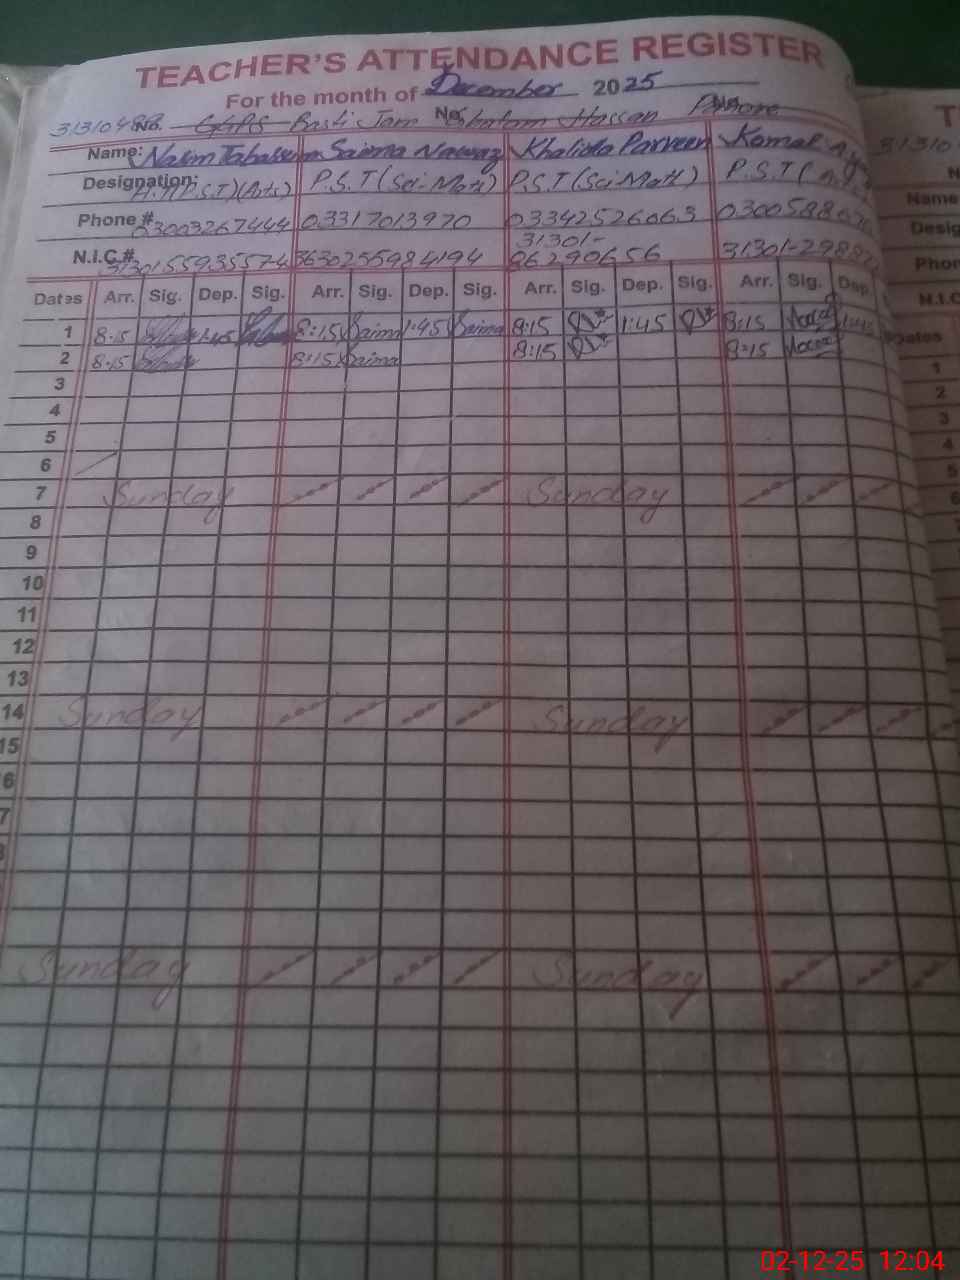 TEACHER'S ATTENDANCE REGISTER
For the month of December 2025
No. GGPS Basti Jam No. Ghulam Hassan
Name: Nasim Tabassum Saima Nawaz Khalida Parveen Komal
Designation: (P.S.T)(Arts) P.S.T (Sci-Math) P.S.T (Sci-Math) P.S.T (
Phone # 03003267444 03317013970 03342526063
31301-
N.I.C.# 3130155935574 3630255984194 86290656
Dates Arr. Sig. Dep. Sig. Arr. Sig. Dep. Sig. Arr. Sig. Dep. Sig. Arr. Sig. Dep.
1 8:15 1:45 8:15 Saima 1:45 Saima 8:15 1:45 8:15 1:45
2 8:15 8:15 Saima 8:15 8:15
3
4
5
6
7 Sunday Sunday
8
9
10
11
12
13
14 Sunday Sunday
15
6
7
Sunday Sunday
Name
Desig
Phon
N.I.C
Dates
1
2
3
4
5
6
02-12-25 12:04